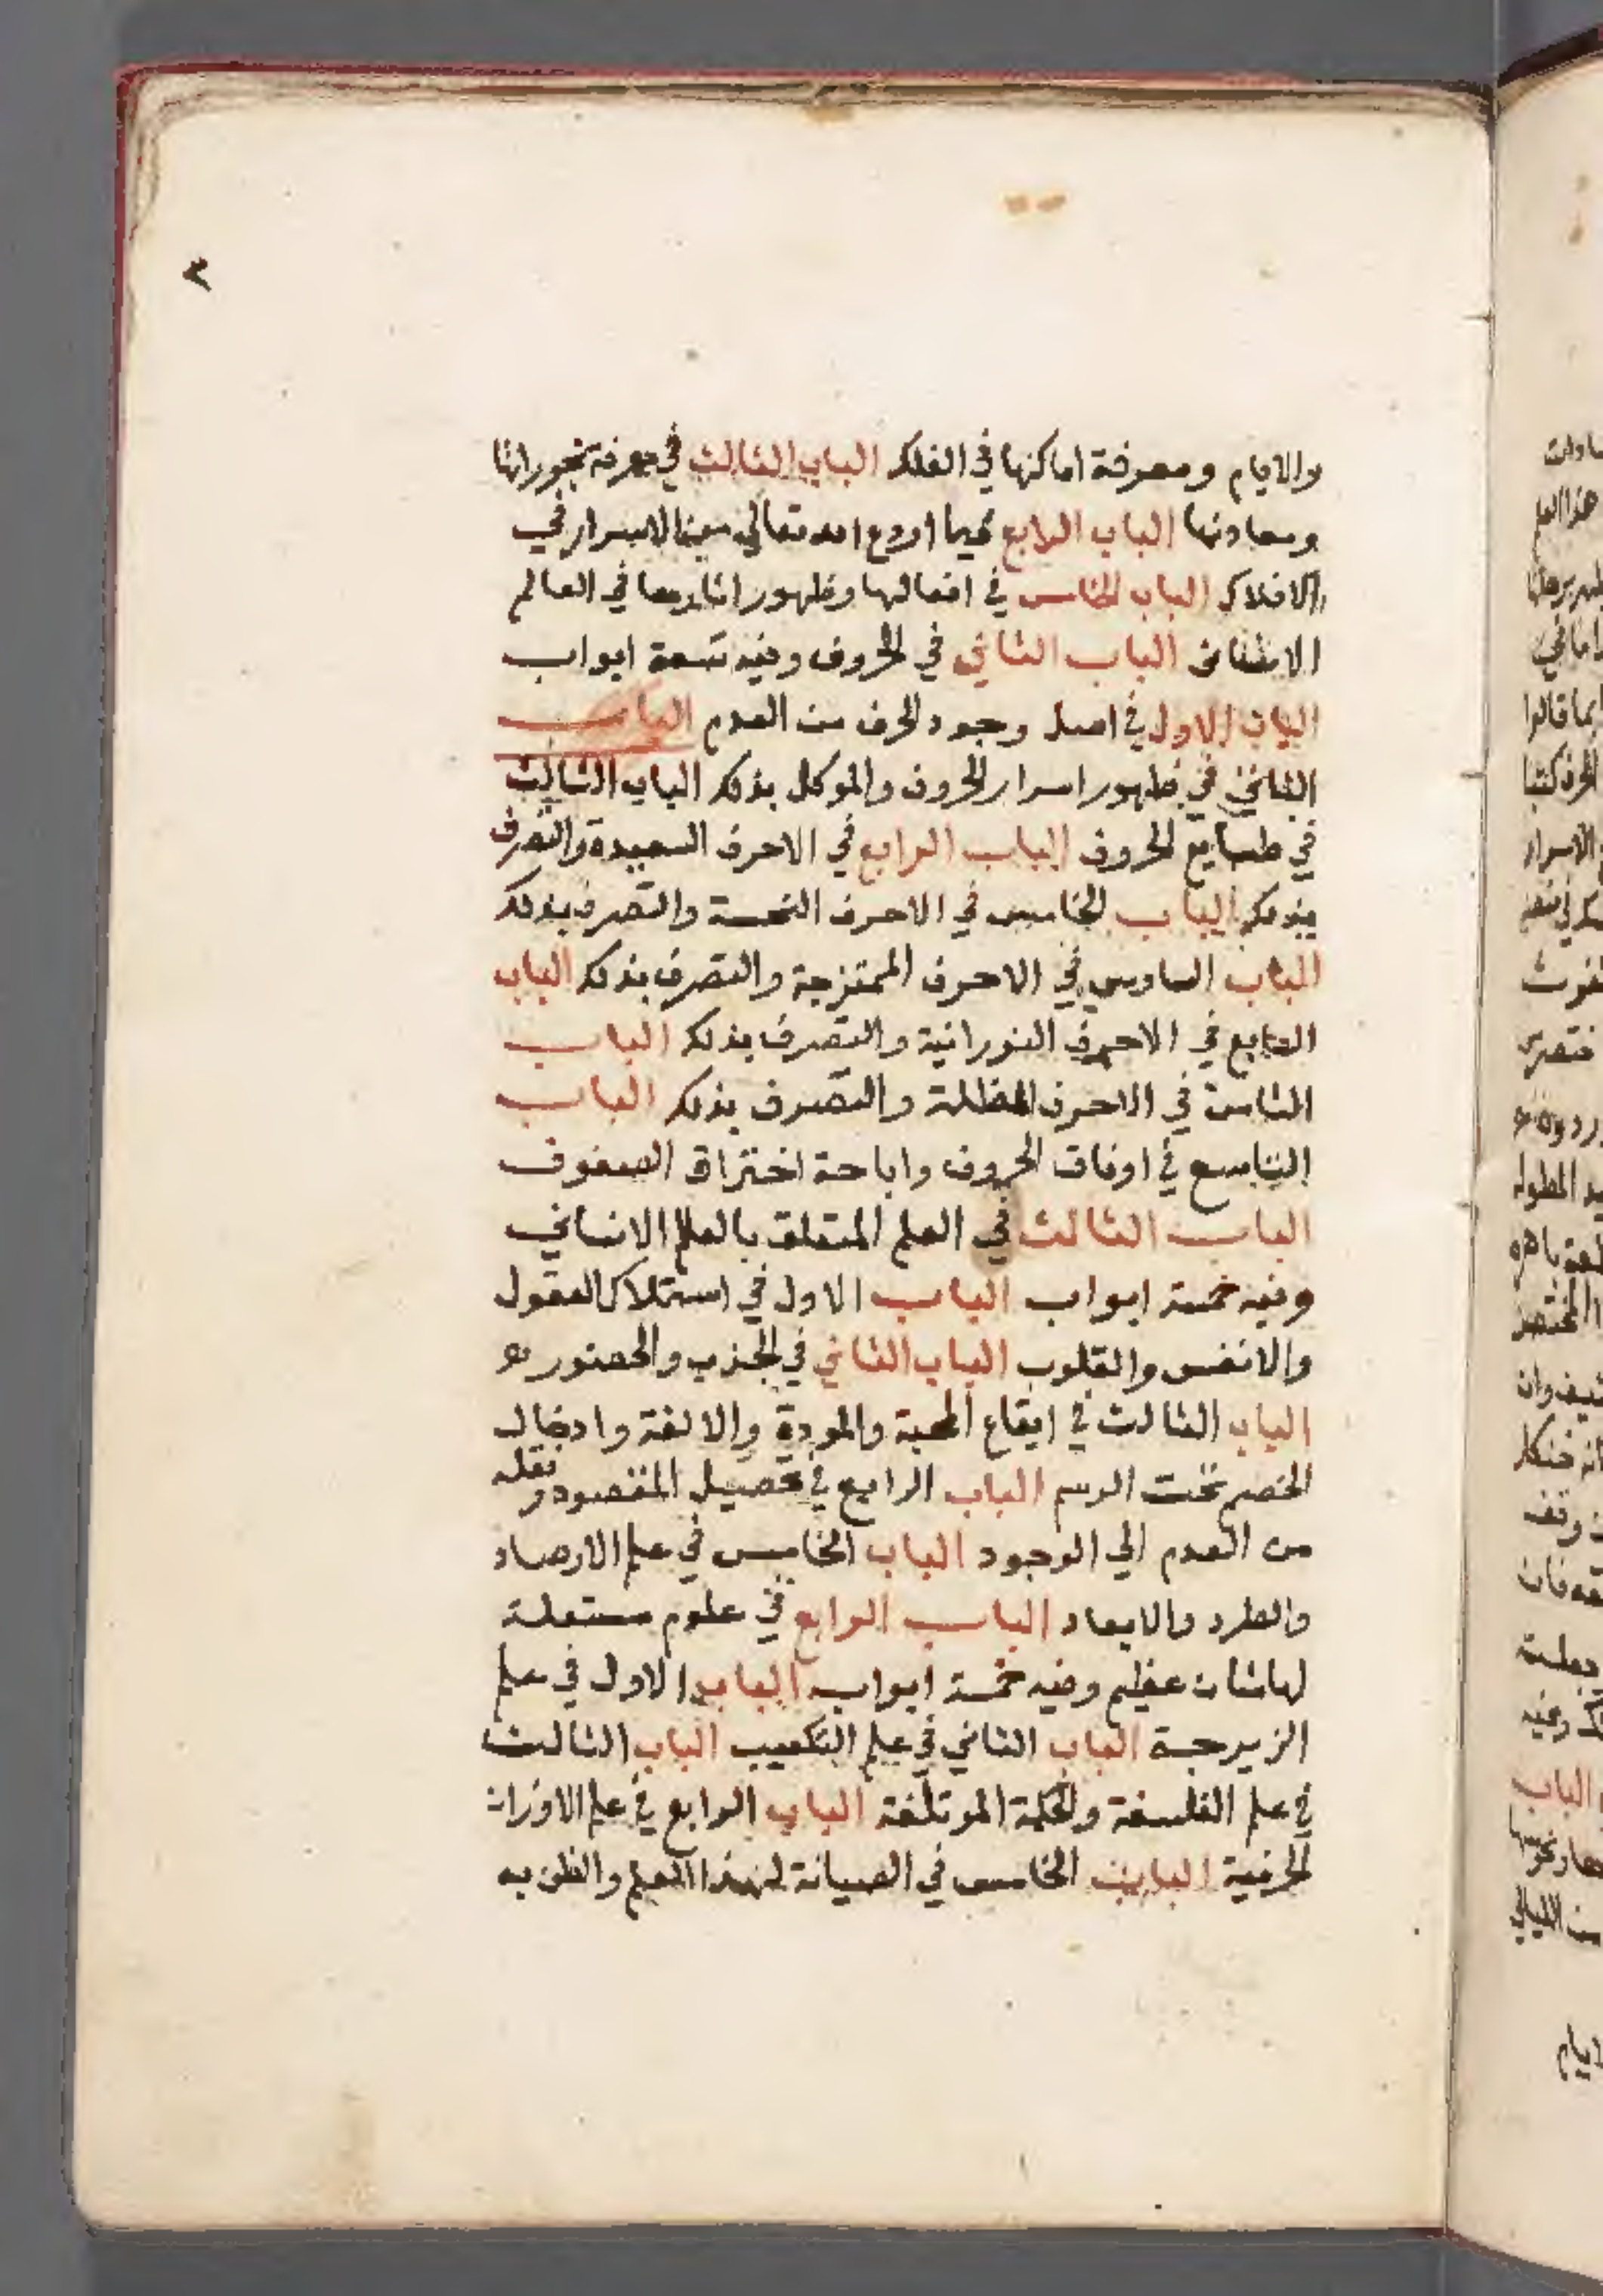 ٣
والايام ومعرفة اماكنها في الفلك الباب الثالث في معرفة بخوراتها
ومعادنها الباب الرابع فيما اودع الله تعالى من الاسرار في
الافلاك الباب الخامس في افعالها وظهور اثارها في العالم
الباب الثاني في الحروف وفيه تسعة ابواب
الباب الاول في اصل وجود الحرف من العدم الباب
الثاني في ظهور اسرار الحروف والموكل بذلك الباب الثالث
في طبايع الحروف الباب الرابع في الاحرف السعيدة والتصرف
بذلك الباب الخامس في الاحرف النحسة والتصرف بذلك
الباب السادس في الاحرف الممتزجة والتصرف بذلك الباب
السابع في الاحرف النورانية والتصرف بذلك الباب
الثامن في الاحرف المظلمة والتصرف بذلك الباب
التاسع في اوفاق الحروف واباحة اختراق الصفوف
الباب الثالث في العلم المتعلق بالعلم الانساني
وفيه خمسة ابواب الباب الاول في استملاك العقول
والانفس والقلوب الباب الثاني في الجذب والحضور
الباب الثالث في ايقاع المحبة والمودة والالفة وادخال
الخصم تحت الرسم الباب الرابع في تحصيل المقصود ونقله
من العدم الي الوجود الباب الخامس في علم الارصاد
والطرد والابعاد الباب الرابع في علوم مستعملة
لهاشان عظيم وفيه خمسة ابواب الباب الاول في علم
الزيرجة الباب الثاني في علم التكعيب الباب الثالث
في علم الفلسفة والحكمة الموتلفة الباب الرابع في علم الاوزان
الحرفية الباب الخامس في الصيانة لهذا العلم والظن به